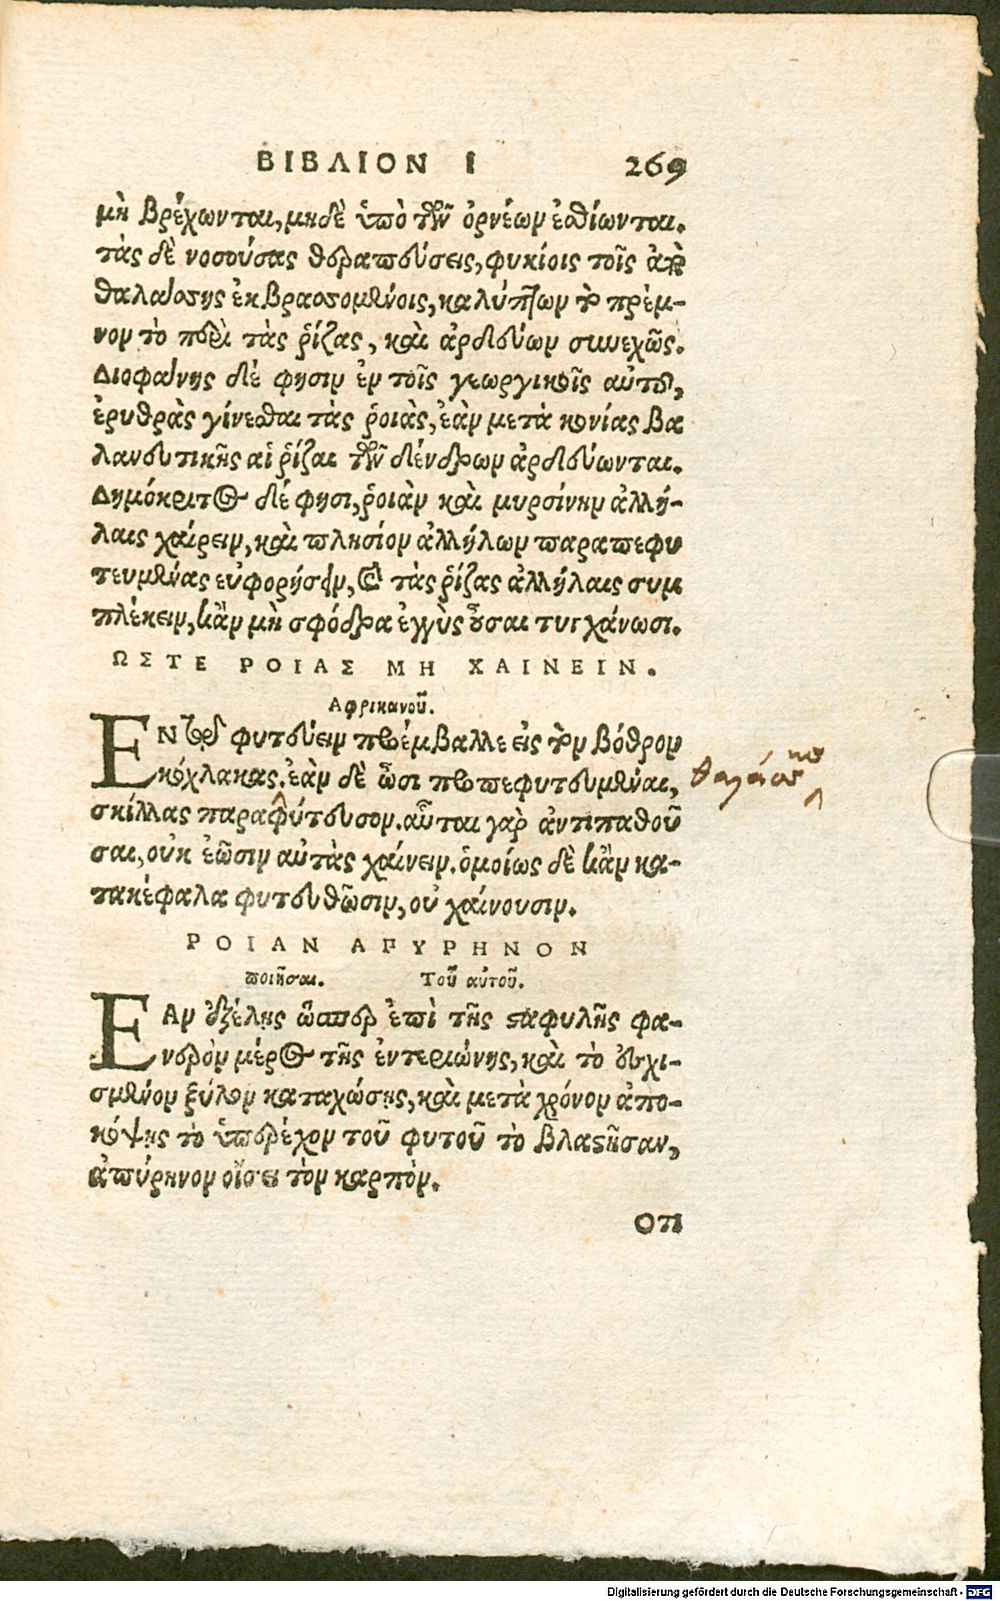 ΒΙΒΛΙΟΝ Ι 269
μὴ βρέχωνται, μηδὲ ὑπὸ τῶν ὀρνέων ἐσθίωνται.
τὰς δὲ νοσούσας θεραπεύσεις, φυκίοις τοῖς ἀπὸ
θαλάσσης ἐκβρασσομένοις, καλύπτων τὸ πρέμ-
νον τὸ περὶ τὰς ῥίζας, καὶ ἀρδεύων συνεχῶς.
Διοφάνης δέ φησιν ἐν τοῖς γεωργικοῖς αὐτοῦ,
ἐρυθρὰς γίνεσθαι τὰς ῥοιὰς, ἐὰν μετὰ κονίας βα
λανευτικῆς αἱ ῥίζαι τῶν δένδρων ἀρδεύωνται.
Δημόκριτος δέ φησι, ῥοιὰν καὶ μυρσίνην ἀλλή-
λαις χαίρειν, καὶ πλησίον ἀλλήλων παραπεφυ
τευμένας εὐφορήσειν, καὶ τὰς ῥίζας ἀλλήλαις συμ
πλέκειν, κἂν μὴ σφόδρα ἐγγὺς οὖσαι τυγχάνωσι.
ΩΣΤΕ ΡΟΙΑΣ ΜΗ ΧΑΙΝΕΙΝ.
Αφρικανοῦ.
ΕΝ τῷ φυτεύειν προέμβαλλε εἰς τὸν βόθρον
κόχλακας. ἐὰν δὲ ὦσι προπεφυτευμέναι,
σκίλλας παραφύτευσον. αὗται γὰρ ἀντιπαθοῦ
σαι, οὐκ ἐῶσιν αὐτὰς χαίνειν. ὁμοίως δὲ κἂν κα-
τακέφαλα φυτευθῶσιν, οὐ χαίνουσιν.
ΡΟΙΑΝ ΑΠΥΡΗΝΟΝ
ποιῆσαι. Τοῦ αὐτοῦ.
ΕΑν ἐξέλῃς ὥσπερ ἐπὶ τῆς σταφυλῆς φα-
νερὸν μέρος τῆς ἐντεριώνης, καὶ τὸ ἐσχι-
σμένον ξύλον καταχώσῃς, καὶ μετὰ χρόνον ἀπο-
κόψῃς τὸ ὑπερέχον τοῦ φυτοῦ τὸ βλαστῆσαν,
ἀπύρηνον οἴσει τὸν καρπὸν.
Οπ
Digitalisierung gefördert durch die Deutsche Forschungsgemeinschaft - DFG